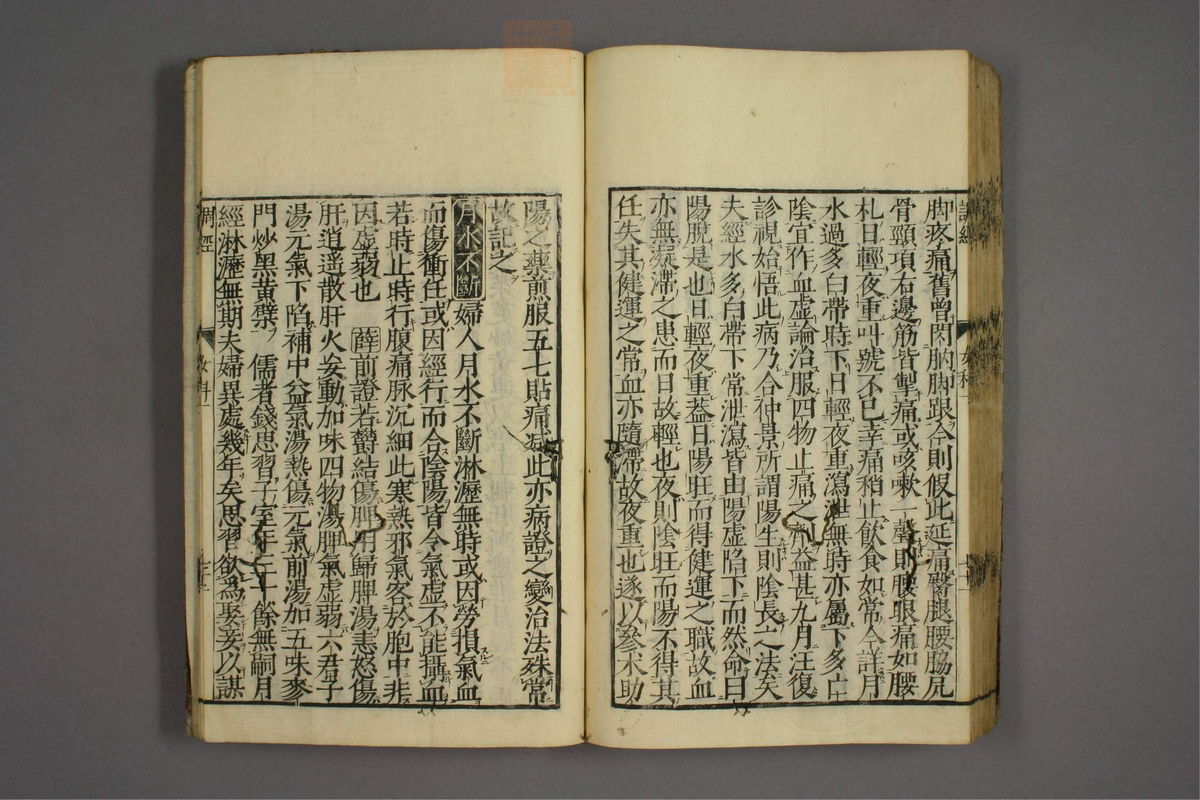 調經
女科一
脚疼痛舊曾閃肭脚跟今則假此延痛臀腿腰脇尻
骨頸項右邊筋皆掣痛或咳嗽一聲則腰眼痛如腰
札日輕夜重叫號不已幸痛稍止飲食如常今詳月
水過多白帶時下日輕夜重瀉泄無時亦屬下多亡
陰宜作血虛論治服四物止痛之劑益甚九月汪復
診視始悟此病乃合仲景所謂陽生則陰長之法矣
夫經水多白帶下常泄瀉皆由陽虛陷下而然命曰
陽脫是也日輕夜重蓋日陽旺而得健運之職故血
亦無凝滯之患而日故輕也夜則陰旺而陽不得其
任失其健運之常血亦隨滯故夜重也遂以參术助
陽之藥煎服五七貼痛减此亦病證之變治法殊常
故記之
月水不斷 婦人月水不斷淋瀝無時或因勞損氣血
而傷衝任或因經行而合陰陽皆令氣虛不能攝血
若時止時行腹痛脉沉細此寒熱邪氣客於胞中非
因虛弱也 薛前證若鬱結傷脾用歸脾湯恚怒傷
肝逍遥散肝火妄動加味四物湯脾氣虛弱六君子
湯元氣下陷補中益氣湯熱傷元氣前湯加五味麥
門炒黑黄蘗 儒者錢思習子室年三十餘無嗣月
經淋瀝無期夫婦異處幾年矣思習欲為娶妾以謀
調經
女科一